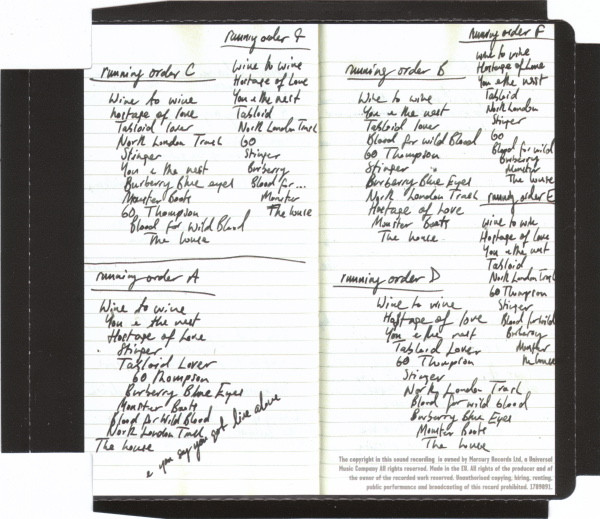 running order C
Wine to wine
hostage of love
Tabloid lover
North London Trash
Stinger
You & the nest
Burberry Blue eyes
Monster Boots
GO Thompson
Blood for Wild Blood
The house
running order G
wine to wine
Hostage of Love
You & the nest
Tabloid
North London Trash
GO
Stinger
Burberry
Blood for ...
Monster
The house
running order A
Wine to wine
You & the nest
Hostage of Love
Stinger
Tabloid Lover
GO Thompson
Burberry Blue Eyes
Monster Boots
Blood for Wild Blood
North London Trash
The house
& you say you got live alive
running order B
Wine to wine
You & the nest
Tabloid lover
Blood for wild Blood
GO Thompson
Stinger "
Burberry Blue Eyes
North London Trash
Hostage of Love
Monster Boots
The house
running order F
wine to wine
Hostage of Love
You & the nest
Tabloid
North London
Stinger
GO
Blood for wild
Burberry
Monster
The house
running order E
wine to wine
Hostage of Love
You & the nest
Tabloid
North London Trash
GO Thompson
Stinger
Blood for wild
Burberry
Monster
The house
running order D
Wine to wine
Hostage of love
You & the nest
Tabloid Lover
GO Thompson
Stinger
North London Trash
Blood for wild blood
Burberry Blue Eyes
Monster Boots
The house
The copyright in this sound recording is owned by Mercury Records Ltd, a Universal
Music Company All rights reserved. Made in the EU. All rights of the producer and of
the owner of the recorded work reserved. Unauthorised copying, hiring, renting,
public performance and broadcasting of this record prohibited. 1789891.